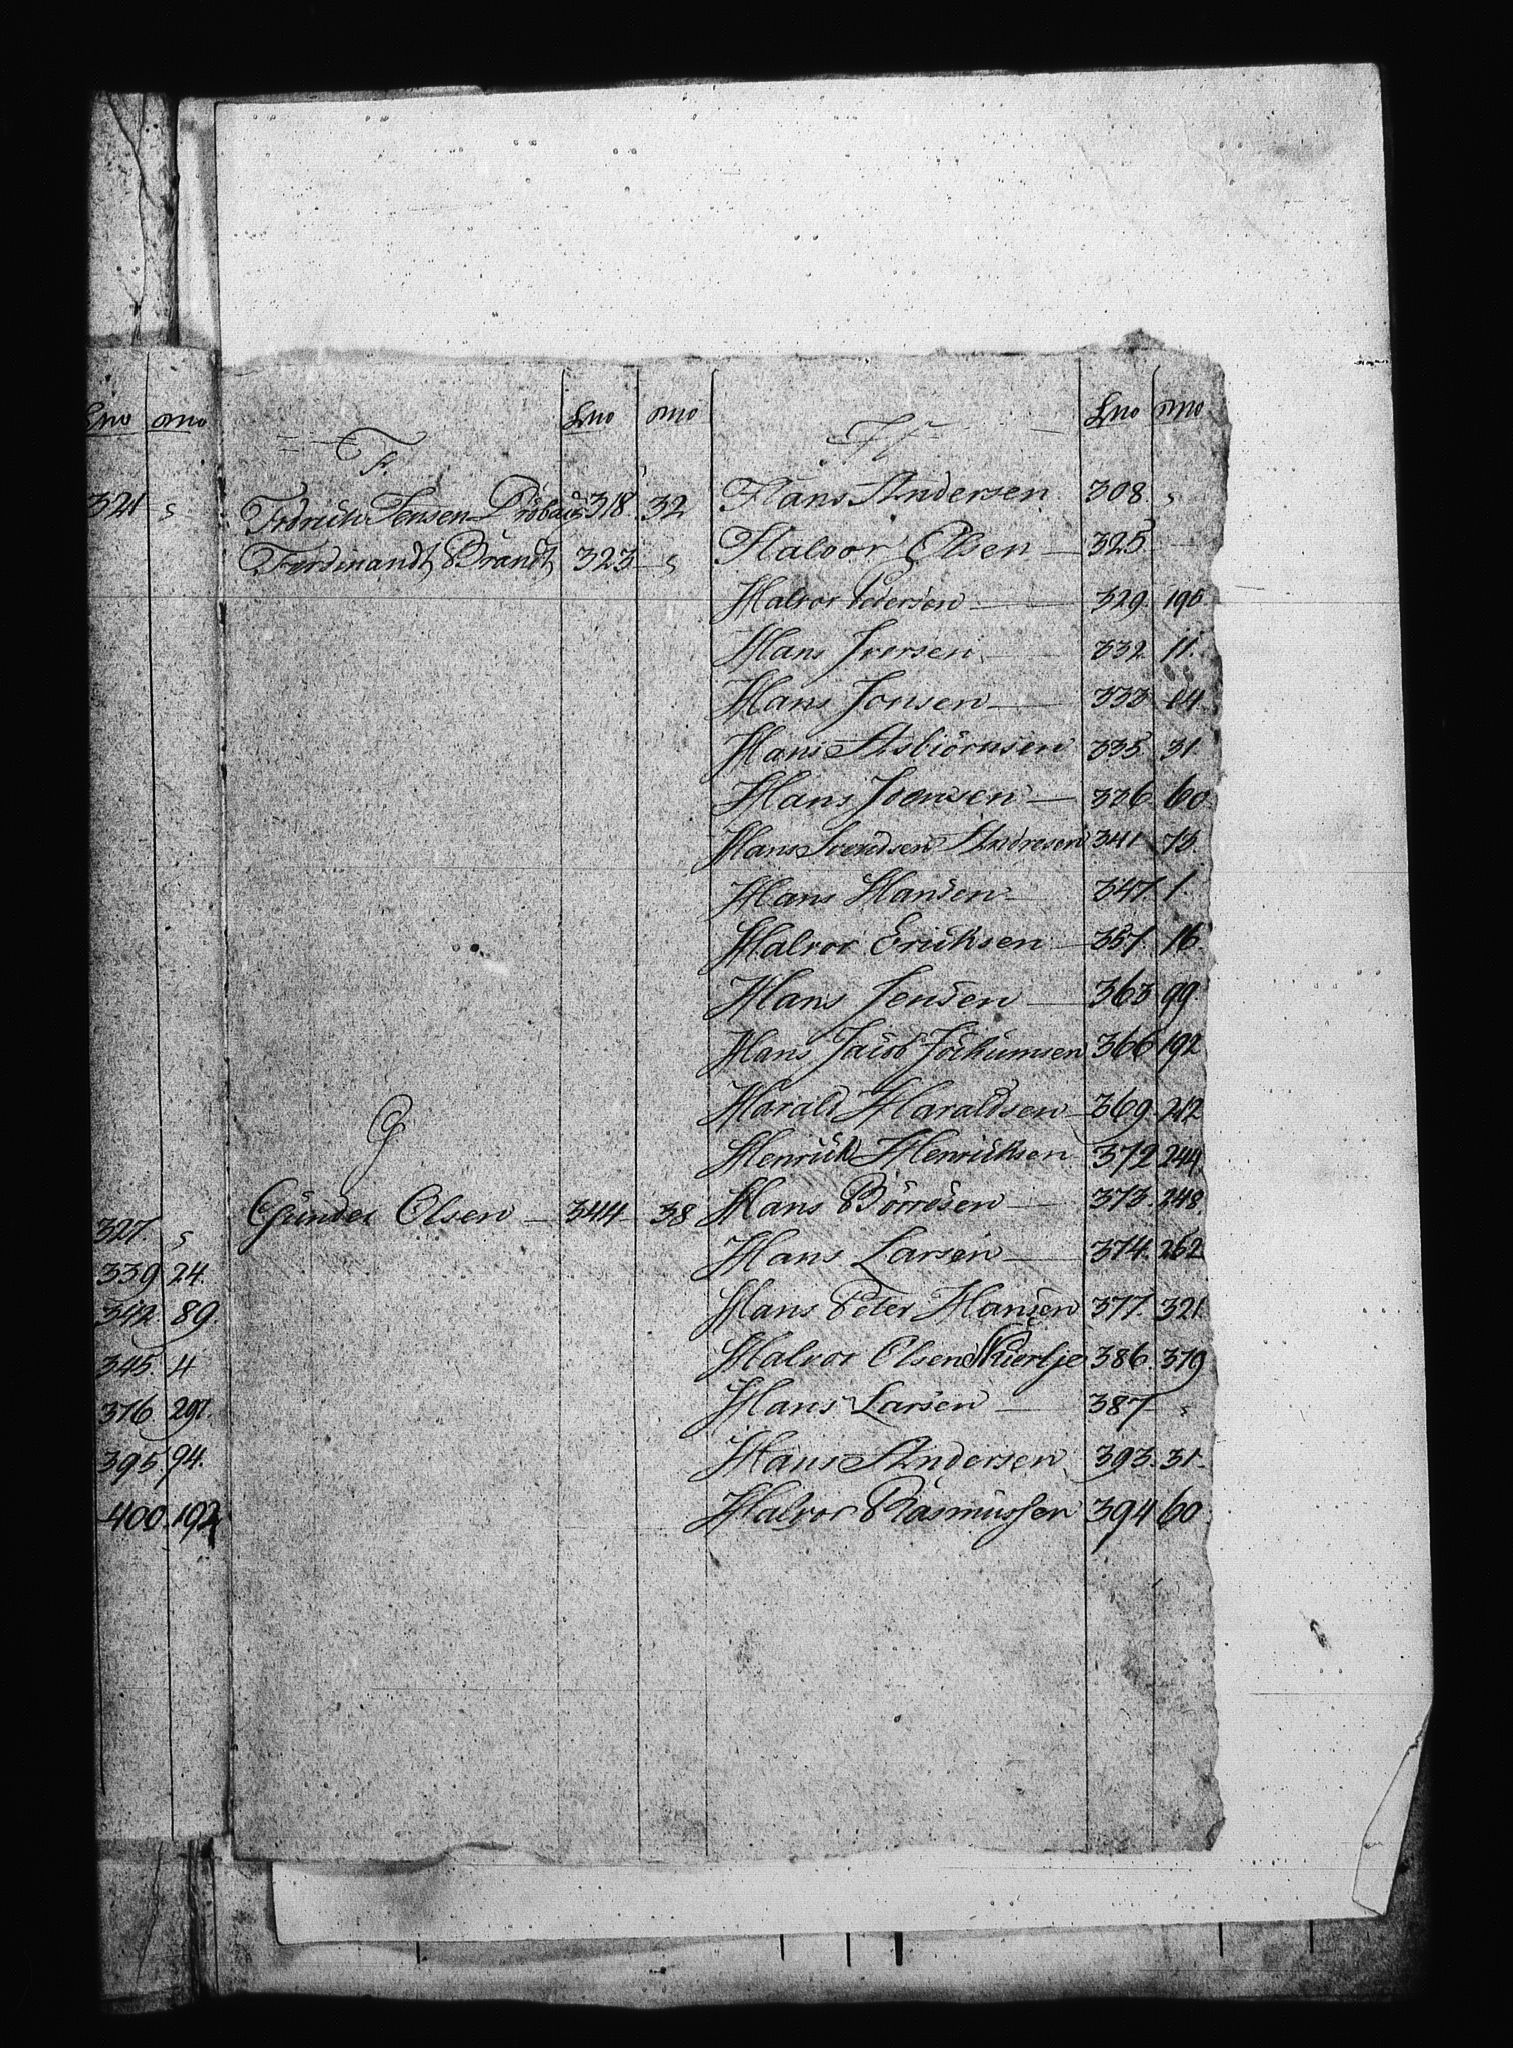 Lno mo
321 "
327. "
339 24.
342. 89.
345. 4
376 297.
395 94.
400. 192
Lno mo
F.
Fedrich Jensen 318. 32
Ferdinandt Brandt 323 "
G
Gunder Olsen 344 38
Lno mo
H
Hans Andersen 308. "
Halvor Olsen 325
Halvor Pedersen 329. 190
Hans Iversen 332. 11.
Hans Jonsen 333 14.
Hans Asbiörnsen 335. 31.
Hans Joensen 336. 60
Hans Svendsen Andresen 341 73.
Hans Hansen 347. 1.
Halvor Ericksen 357. 16
Hans Jensen 363 99.
Hans Jacob Jochumsen 366 192
Harald Haraldsen 369. 212
Henrick Henricksen 372 244
Hans Börresen 373. 248
Hans Larsen 374. 262
Hans Peter Hansen 377. 321.
Halvor Olsen 386. 379
Hans Larsen 387 "
Hans Andersen 393. 31.
Halvor Rasmussen 394 60